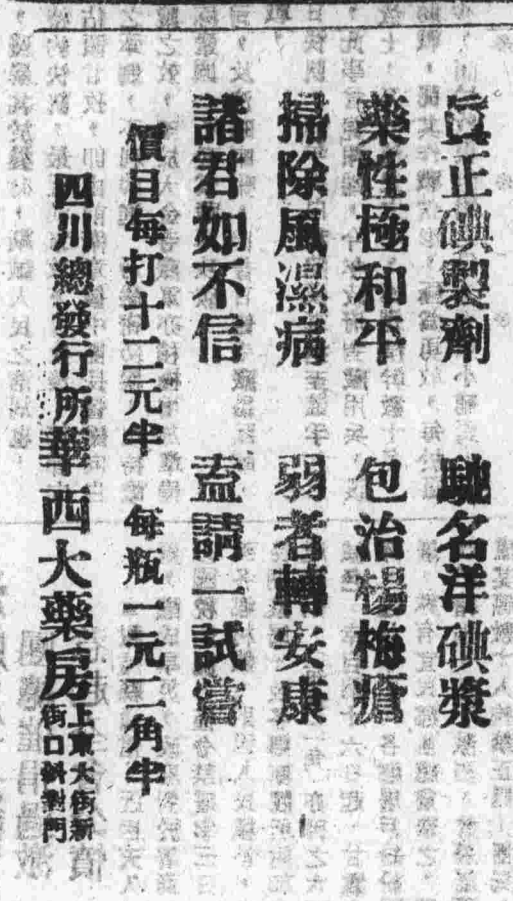 真正碘製劑　馳名洋碘漿
藥性極和平　包治楊梅瘡
掃除風濕病　弱者轉安康
諸君如不信　盍請一試嘗
價目每打十二元半　每瓶一元二角半
四川總發行所華西大藥房
上東大街新
街口斜對門